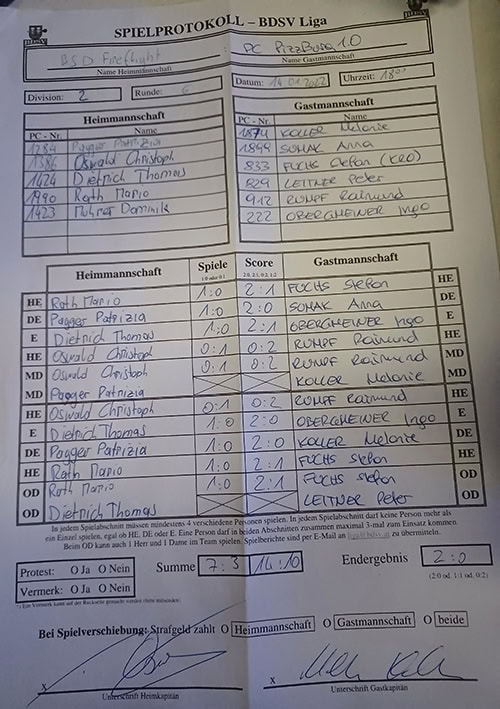 SPIELPROTOKOLL – BDSV Liga
BDSV
BSD Fireflight
PC PizzBuia 1.0
Name Heimmannschaft
Name Gastmannschaft
Division: 2 Runde: 6 Datum: 14.01.2022 Uhrzeit: 18⁰⁰
Heimmannschaft Gastmannschaft
PC - Nr. Name PC - Nr. Name
1284 Pagger Patrizia 1874 KOLLER Melanie
1386 Oswald Christoph 1899 SUMAK Anna
1424 Dietrich Thomas 833 FUCHS Stefan (KRO)
1990 Rath Mario 829 LEITNER Peter
1423 Muhrer Dominik 912 RUMPF Raimund
222 OBERGMEINER Ingo
Heimmannschaft Spiele Score Gastmannschaft
1:0 oder 0:1 2:0, 2:1, 0:2, 1:2
HE Rath Mario 1:0 2:1 FUCHS Stefan HE
DE Pagger Patrizia 1:0 2:0 SUMAK Anna DE
E Dietrich Thomas 1:0 2:1 OBERGMEINER Ingo E
HE Oswald Christoph 0:1 0:2 RUMPF Raimund HE
MD Oswald Christoph 0:1 0:2 RUMPF Raimund MD
MD Pagger Patrizia KOLLER Melanie MD
HE Oswald Christoph 0:1 0:2 RUMPF Raimund HE
E Dietrich Thomas 1:0 2:0 OBERGMEINER Ingo E
DE Pagger Patrizia 1:0 2:0 KOLLER Melanie DE
HE Rath Mario 1:0 2:1 FUCHS Stefan HE
OD Rath Mario 1:0 2:1 FUCHS Stefan OD
OD Dietrich Thomas LEITNER Peter OD
In jedem Spielabschnitt müssen mindestens 4 verschiedene Personen spielen. In jedem Spielabschnitt darf keine Person mehr als
ein Einzel spielen, egal ob HE, DE oder E. Eine Person darf in beiden Abschnitten zusammen maximal 3-mal zum Einsatz kommen.
Beim OD kann auch 1 Herr und 1 Dame im Team spielen. Spielberichte sind per E-Mail an zu übermitteln.
Protest: O Ja O Nein Summe 7:3 14:10 Endergebnis 2:0
Vermerk: O Ja O Nein (2:0 od. 1:1 od. 0:2)
*) Ein Vermerk kann auf der Rückseite gemacht werden ohne
Bei Spielverschiebung: Strafgeld zahlt O Heimmannschaft O Gastmannschaft O beide
x x
Unterschrift Heimkapitän Unterschrift Gastkapitän